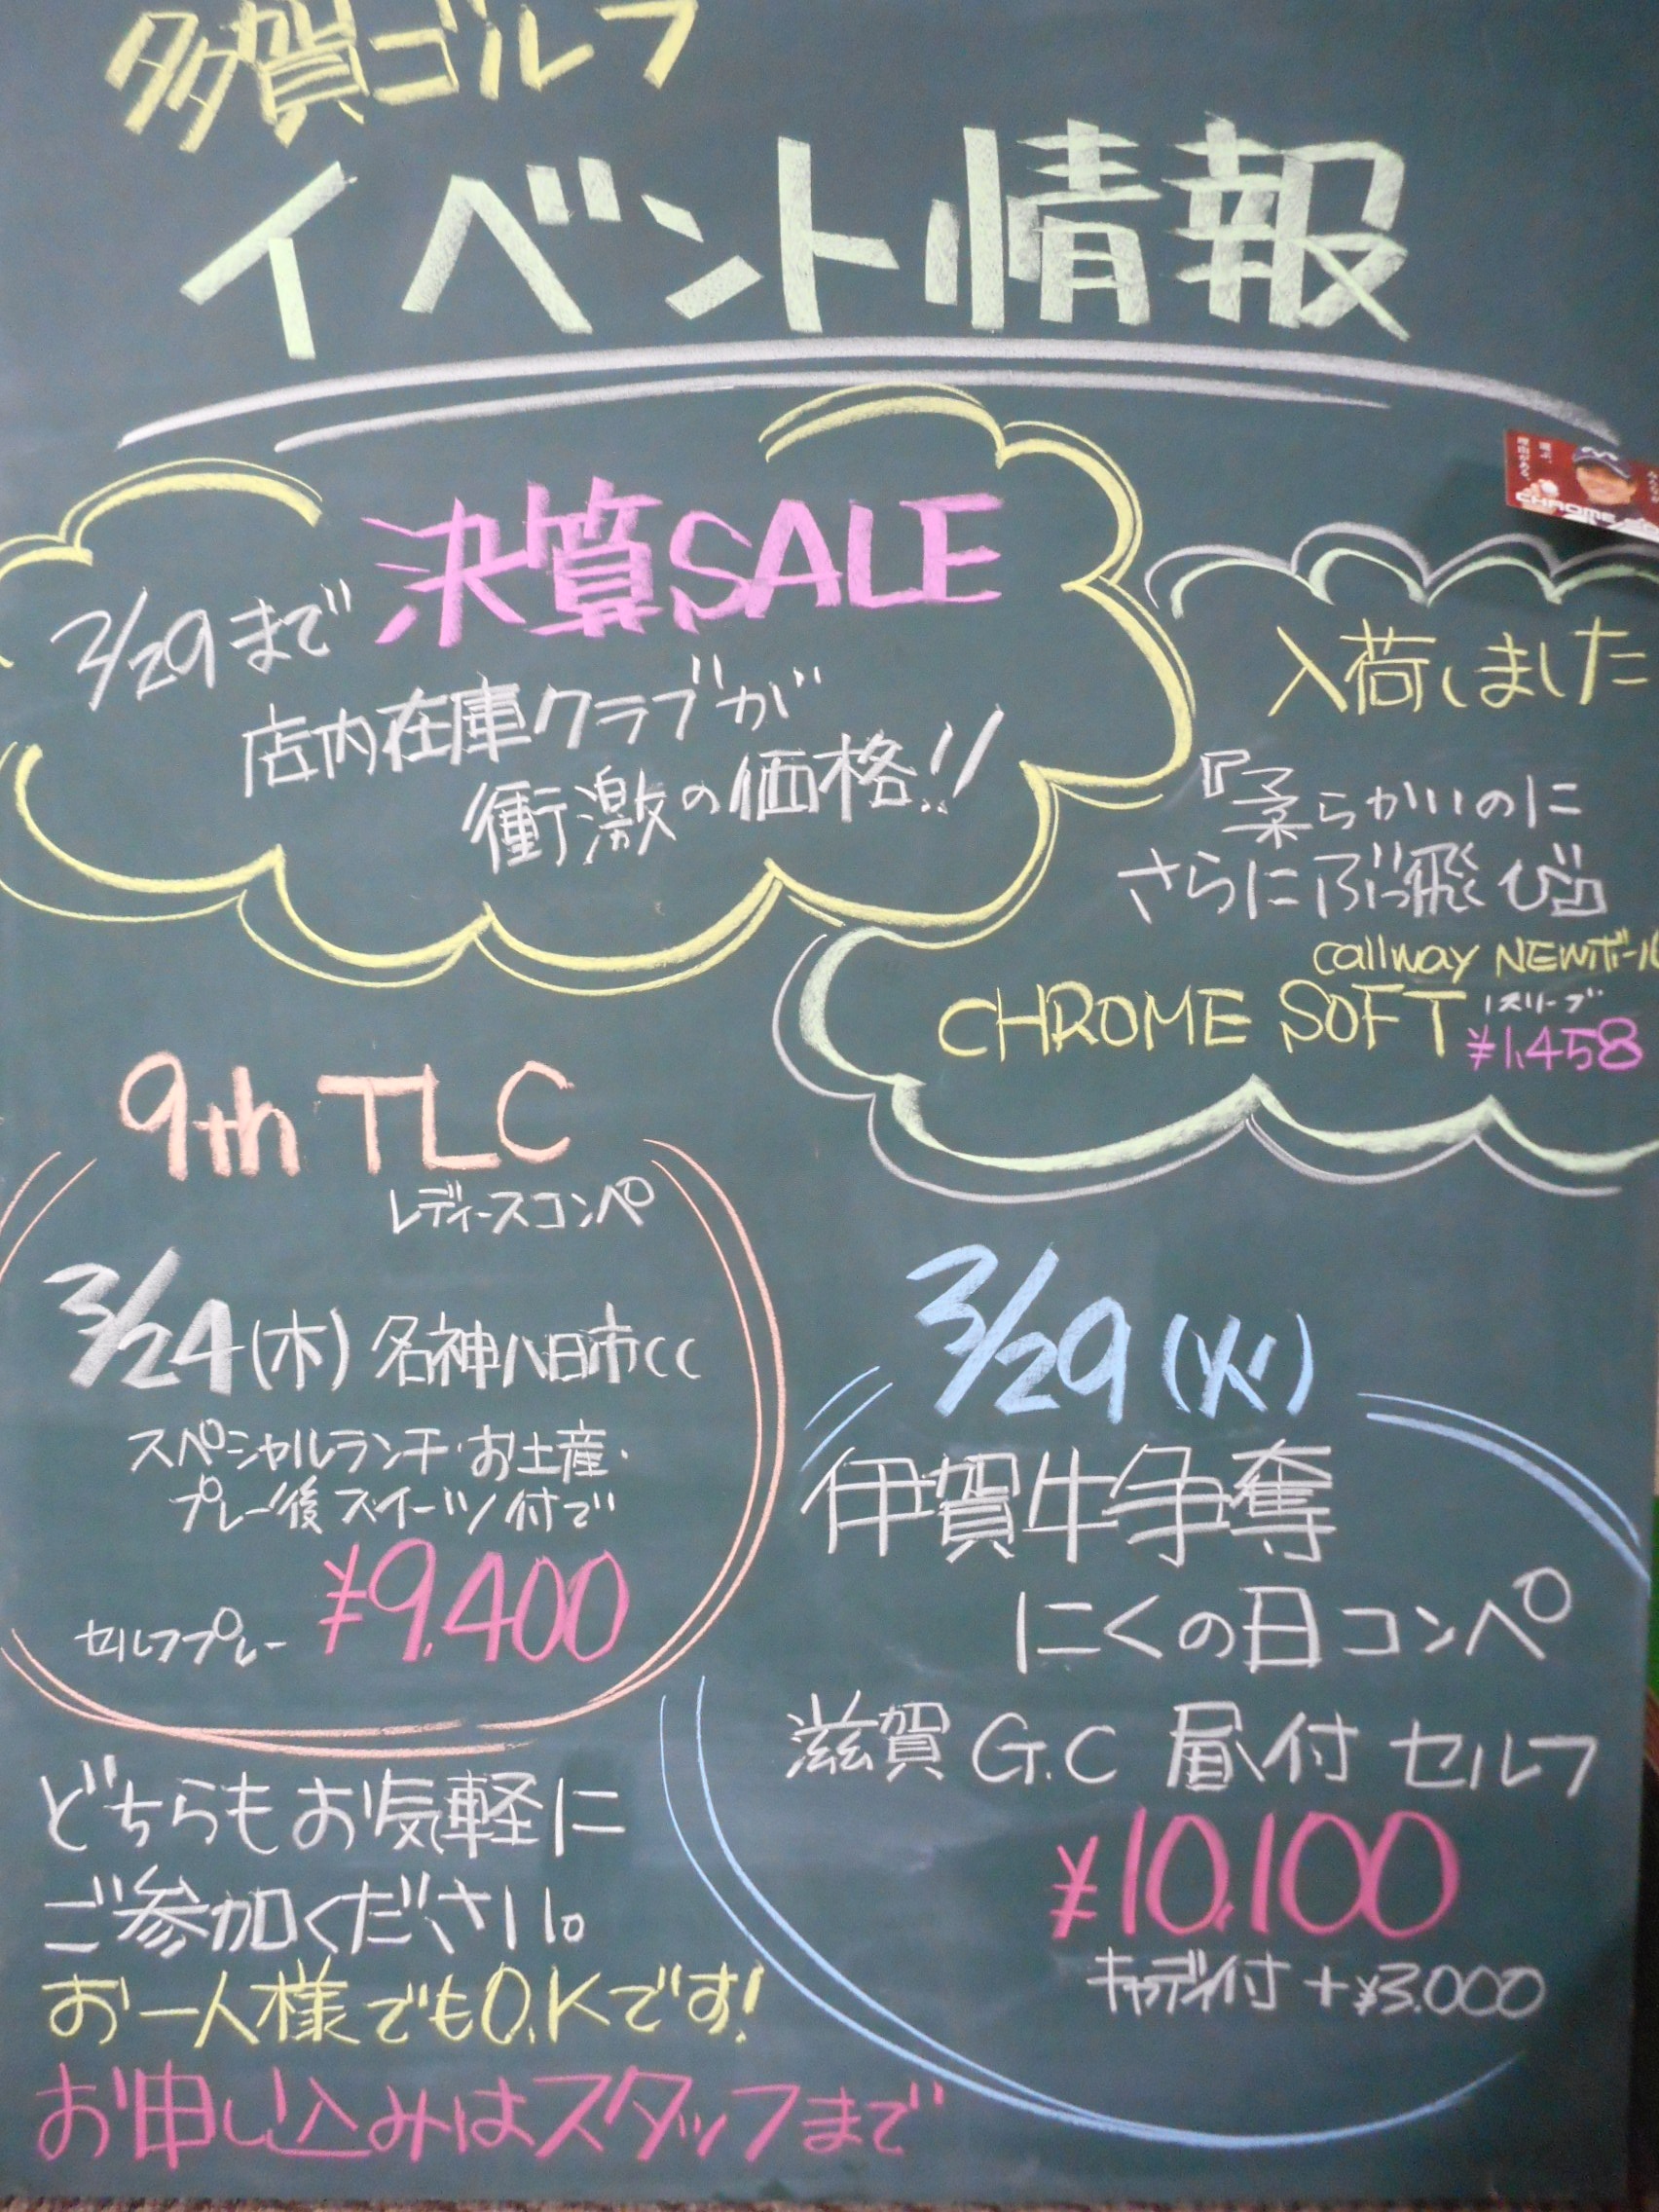 多賀ゴルフ
イベント情報
2/29まで 決算SALE
店内在庫クラブが
衝激の価格!!
入荷しました
『柔らかいのに
さらにぶっ飛び』
callway NEWボール
CHROME SOFT 1スリーブ
¥1,458
9th TLC
レディースコンペ
3/24(木) 名神八日市CC
スペシャルランチ・お土産・
プレー後スイーツ付で
セルフプレー ¥9,400
3/29(火)
伊賀牛争奪
にくの日コンペ
滋賀G.C 昼付セルフ
¥10,100
キャディ付+¥3,000
どちらもお気軽に
ご参加ください。
お一人様でもO.Kです!
お申し込みはスタッフまで